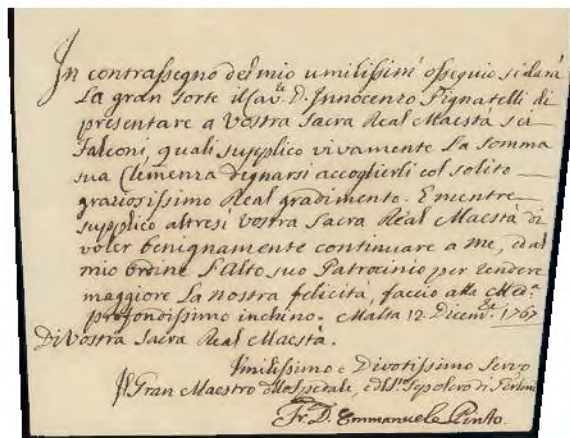 In contrassegno del mio umilissimo ossequio si darà
La gran sorte il Cav.re D. Innocenzo Pignatelli di
presentare a Vostra Sacra Real Maestà sei
Falconi, quali supplico vivamente La somma
sua Clemenza degnarsi accoglierli col solito
graziosissimo Real gradimento. E mentre
supplico altresì Vostra Sacra Real Maestà di
voler benignamente continuare a me, ed al
mio Ordine l'Alto suo Patrocinio per rendere
maggiore La nostra felicità, faccio alla Med.a
profondissimo inchino. Malta 12. Dicemb.e 1767
Di Vostra Sacra Real Maestà.
Umilissimo e Divotissimo Servo
Il Gran Maestro dell'Ospedale, e del S.to Sepolcro di
Fr. D. Emmanuele Pinto.